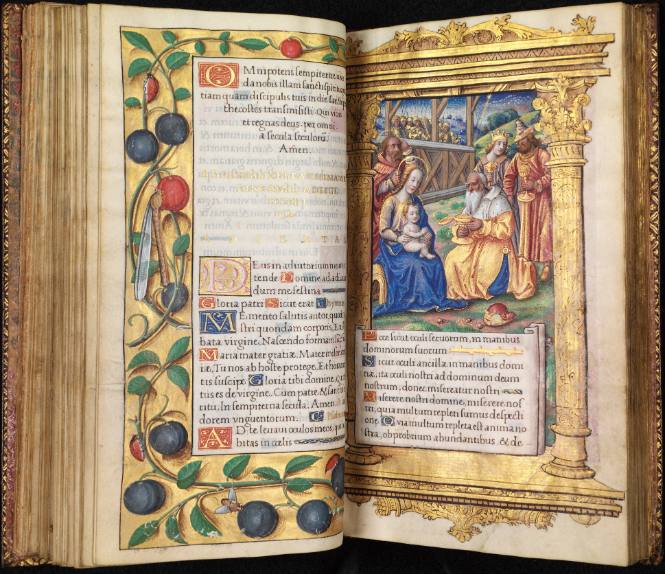 OMnipotens sempiterne
da nobis illam sancti spiritus
tiam quam discipulis tuis in die
thecostes transmisisti. Qui vivis
et regnas deus. per omnia
a secula seculorũ.
Amen.
DEus in adiutorium
tende Domine ad
dum me festina
Gloria patri Sicut erat
MEmento salutis autor, quod
stri quondam corporis, Ex
bata virgine Nascendo formam
Maria mater gratiæ, Mater
iæ, Tu nos ab hoste protege, Et hora
tis suscipe Gloria tibi domine, qui
tus es de virgine, Cum patre &
ritu, In sempiterna secula, Amen.
dorem unguentorum.
AD te levavi oculos meos, qui
bitas in cœlis
Ecce sicut oculi servorum, in manibus
dominorum suorum
Sicut oculi ancillæ, in manibus domi
næ, ita oculi nostri ad dominum deum
nostrum, donec misereatur nostri
Miserere nostri domine, miserere nos
tri, quia multum repleti sumus despecti
one. Quia multum repleta est anima no
stra, obprobrium abundantibus, & de